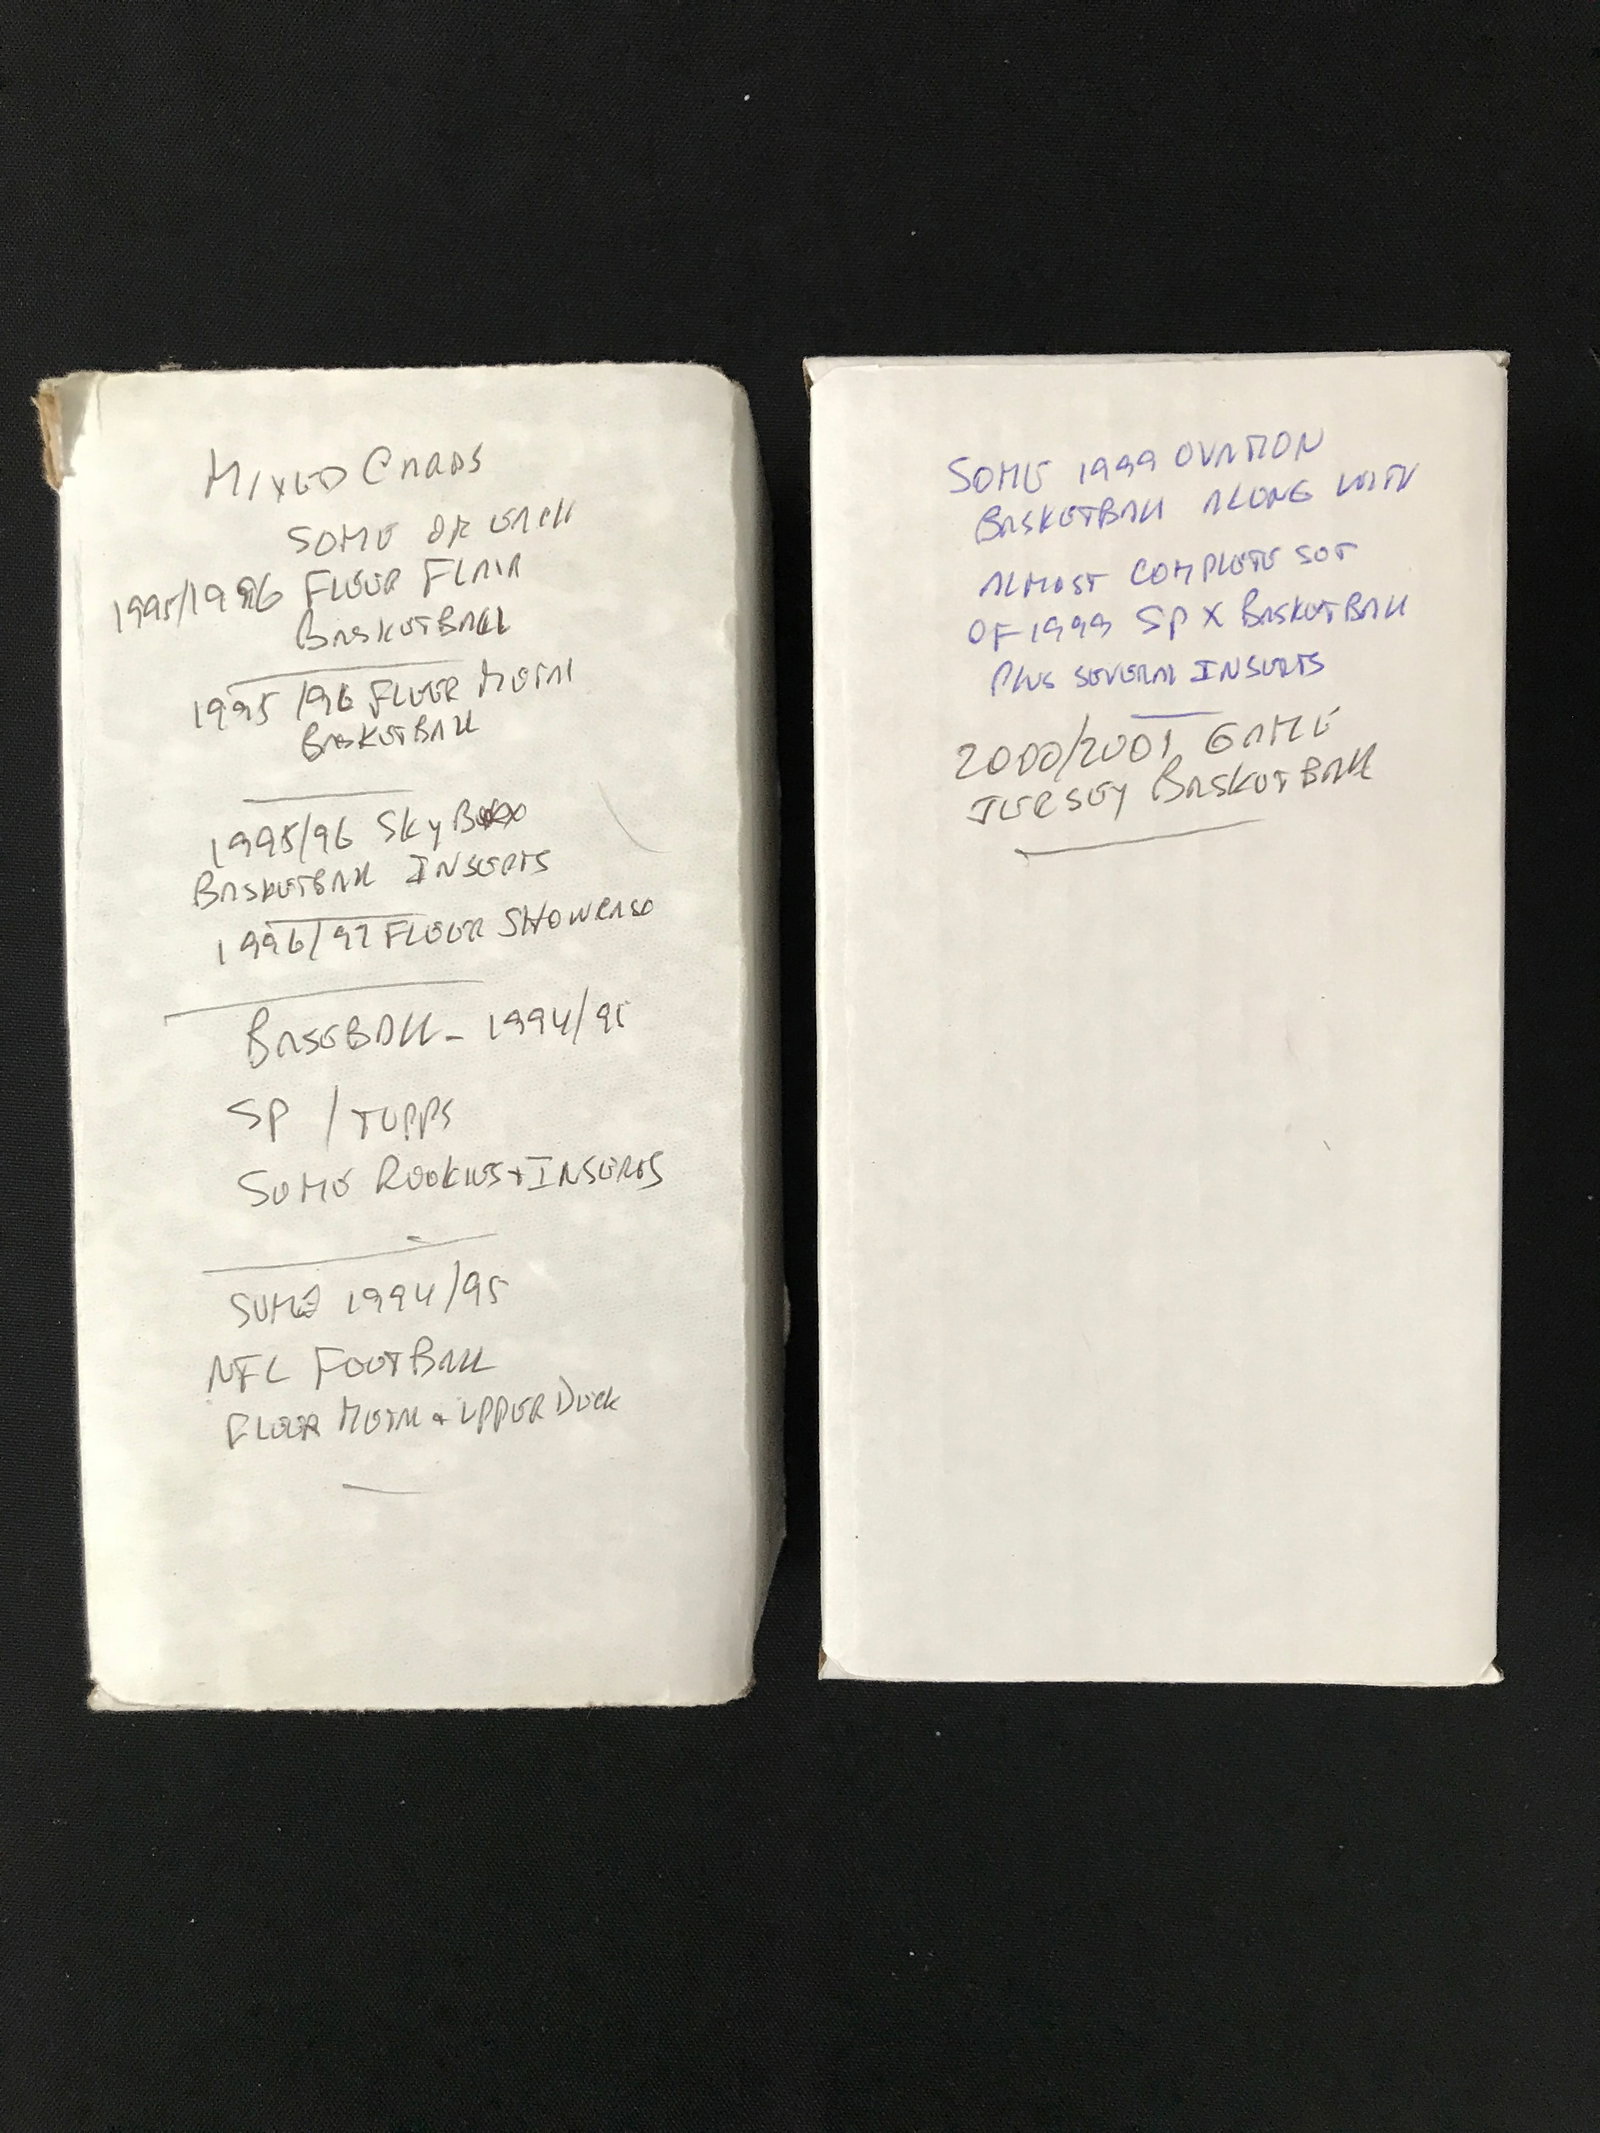 MIXED CARDS
SOME OF EACH
1995/1996 FLEER FLAIR
BASKETBALL
1995/96 FLEER METAL
BASKETBALL
1995/96 SKYBOX
BASKETBALL INSERTS
1996/97 FLEER SHOWCASE
BASEBALL - 1994/95
SP / TOPPS
SOME ROOKIES + INSERTS
SOME 1994/95
NFL FOOTBALL
FLEER METAL + UPPER DECK
SOME 1999 OVATION
BASKETBALL ALONG WITH
ALMOST COMPLETE SET
OF 1999 SP X BASKETBALL
PLUS SEVERAL INSERTS
2000/2001 GAME
JERSEY BASKETBALL